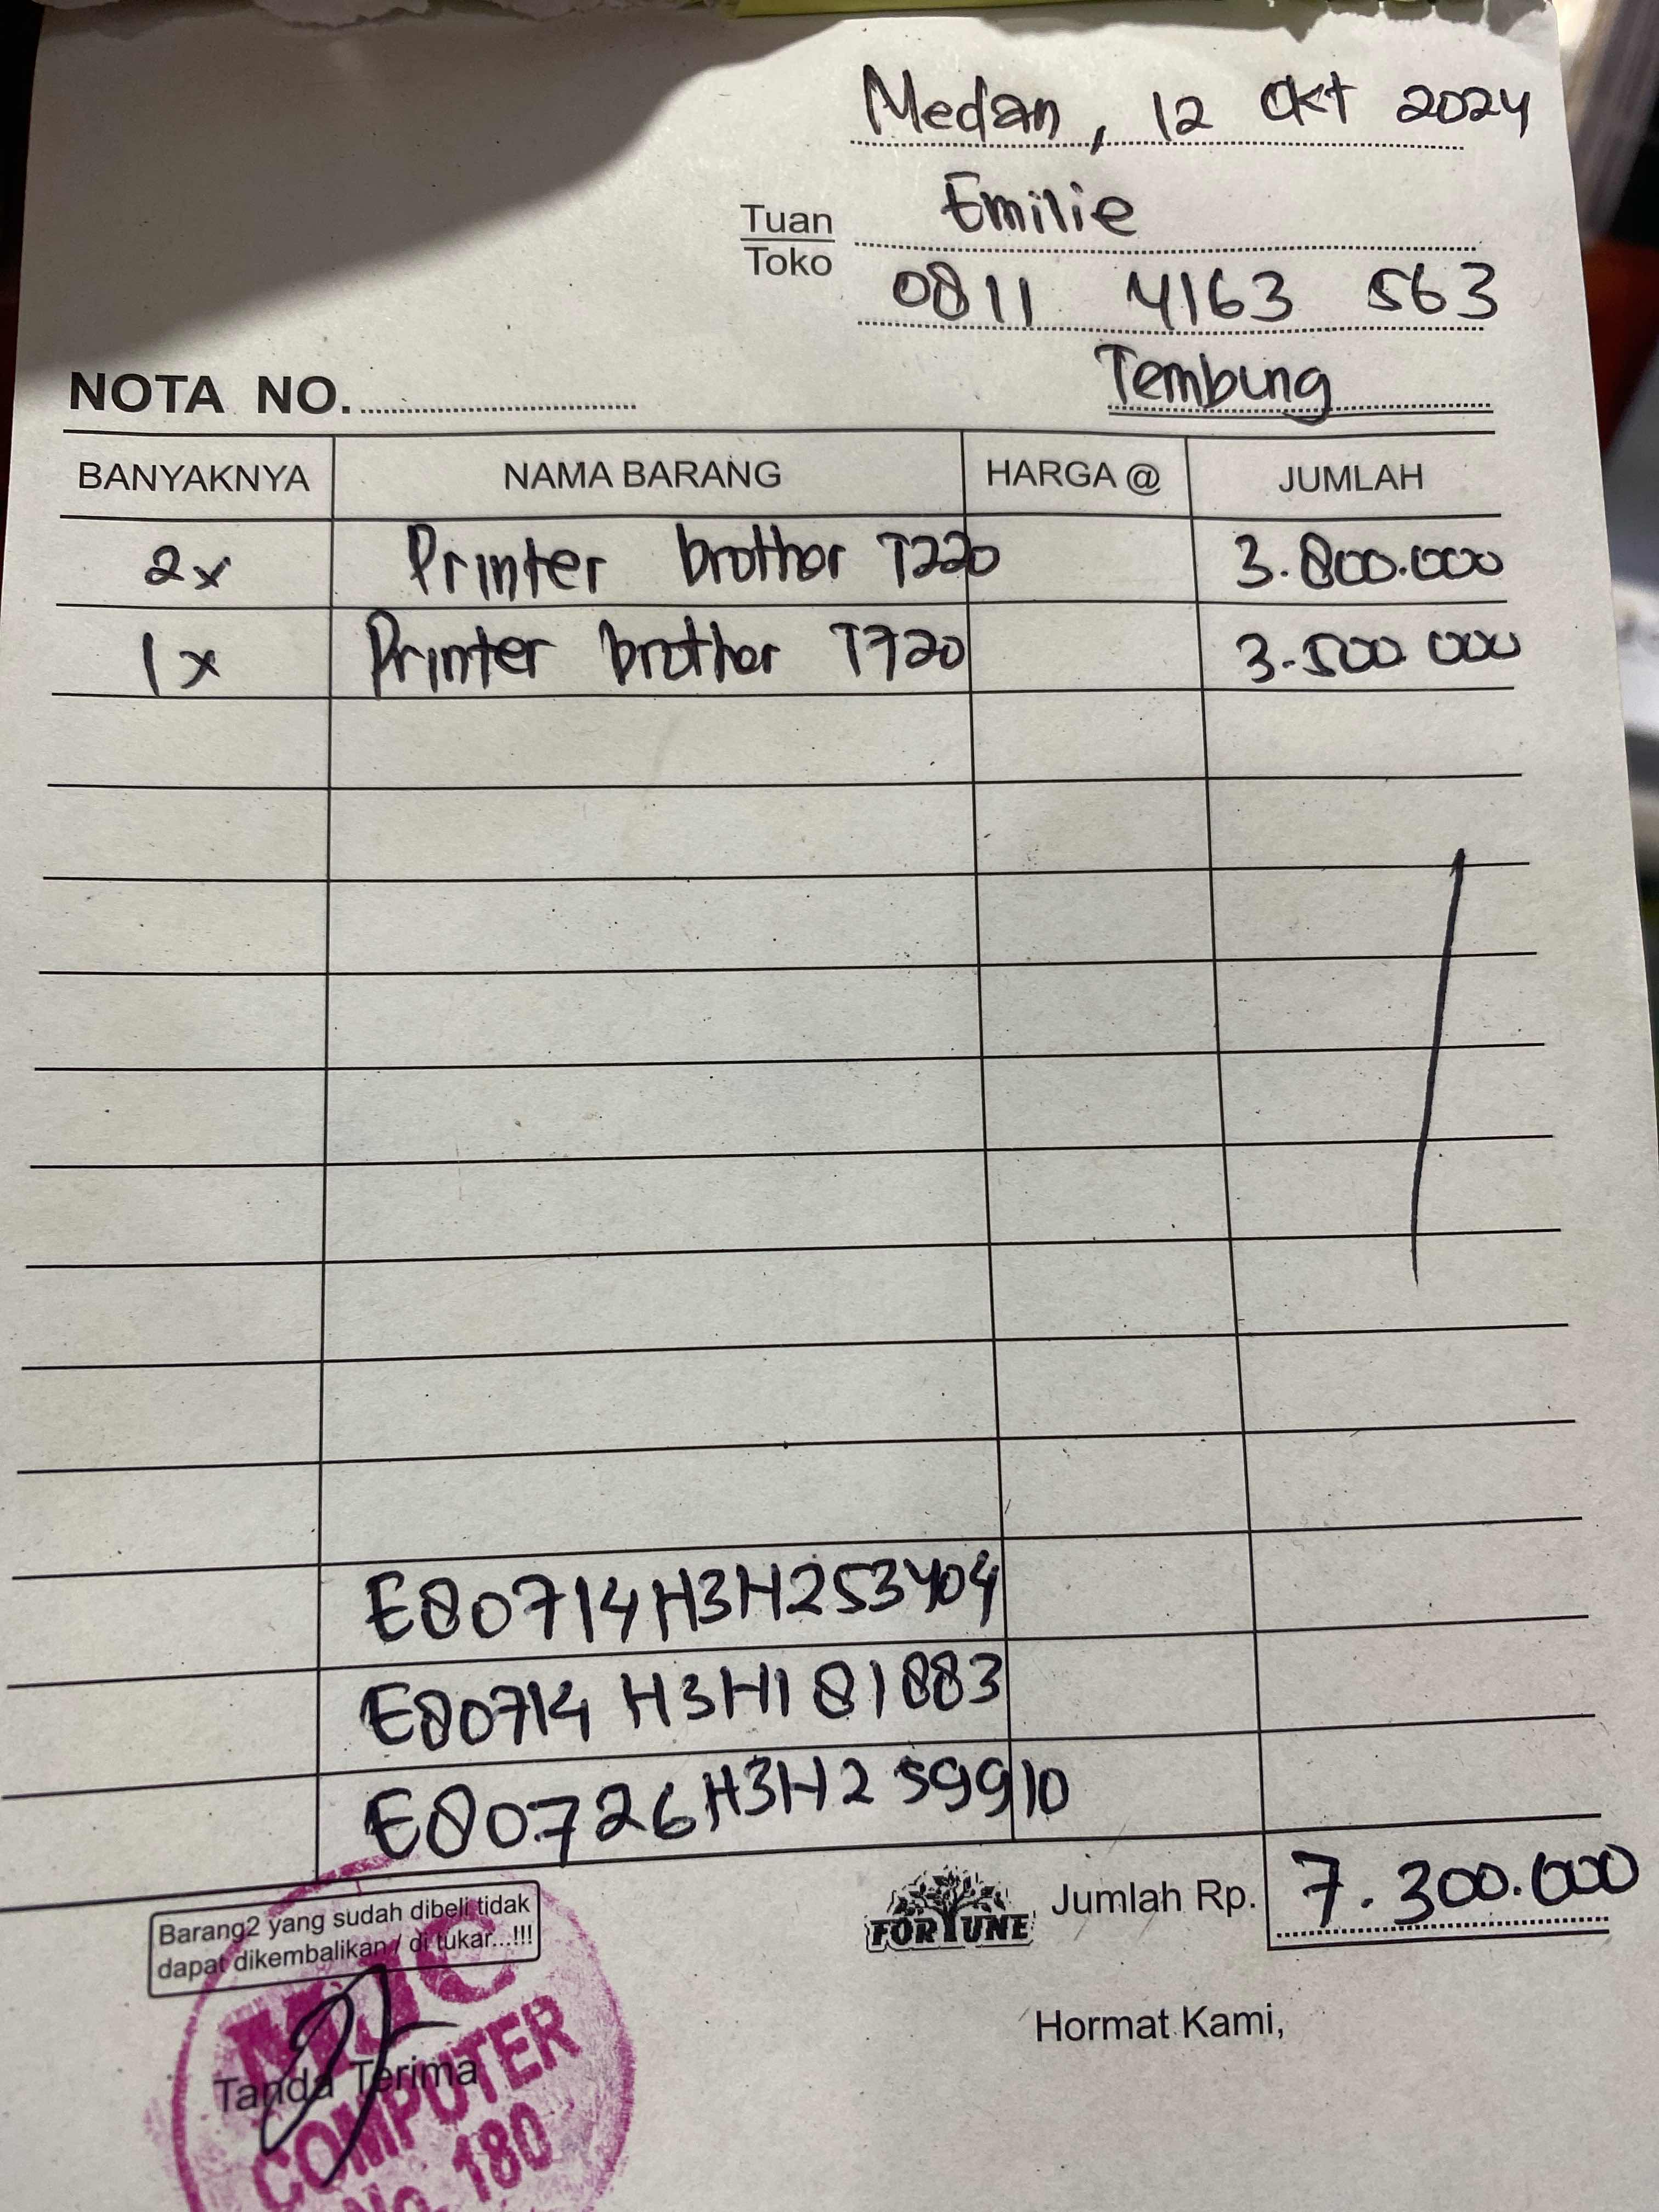 Medan, 12 Okt 2024
Tuan
Toko
Emilie
0811 4163 563
Tembung
NOTA NO.
BANYAKNYA NAMA BARANG HARGA @ JUMLAH
2x Printer brother T220 3.800.000
1x Printer brother T720 3.500 000
E80714H3H253404
E80714 H3H181883
E80726H3H259910
Jumlah Rp. 7.300.000
FORTUNE
Barang2 yang sudah dibeli tidak
dapat dikembalikan / di tukar...!!!
Hormat Kami,
Tanda Terima
COMPUTER
No. 180